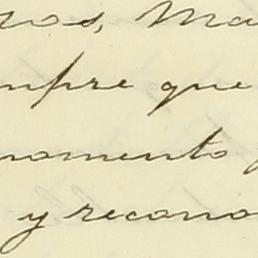 tos, Ma
mpre que
momento
y recono